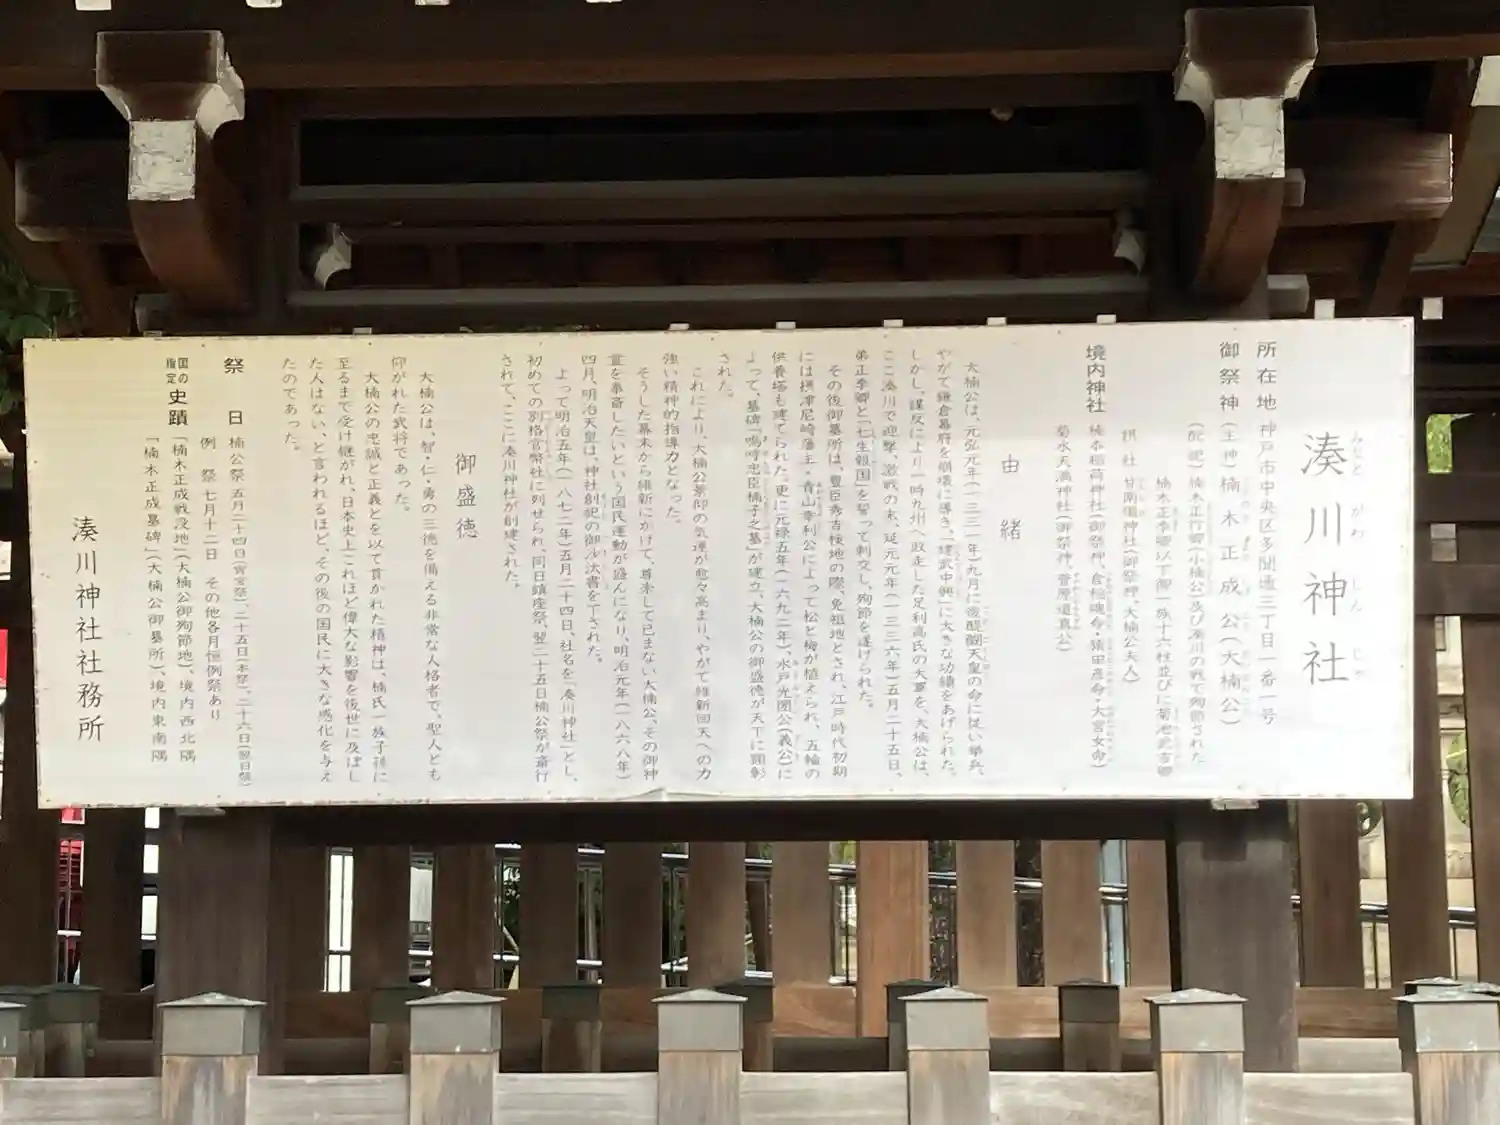 湊川神社
みなと がわ じん じゃ
所在地 神戸市中央区多聞通三丁目一番一号
御祭神 (主神)楠木正成公(大楠公)
(配祀)楠木正行卿(小楠公)及び湊川の戦で殉節された
楠木正季卿以下御一族十六柱並びに菊池武吉卿
摂社 甘南備神社(御祭神、大楠公夫人)
境内神社 楠本稲荷神社(御祭神、倉稲魂命・猿田彦命・大宮女命)
菊水天満神社(御祭神、菅原道真公)
由緒
大楠公は、元弘元年(一三三一年)九月に後醍醐天皇の命に従い挙兵、
やがて鎌倉幕府を崩壊に導き、「建武中興」に大きな功績をあげられた。
しかし、謀反により一時九州へ敗走した足利高氏の大軍を、大楠公は、
ここ湊川で迎撃、激戦の末、延元元年(一三三六年)五月二十五日、
弟正季卿と「七生報国」を誓って刺交し、殉節を遂げられた。
その後御墓所は、豊臣秀吉検地の際、免租地とされ、江戸時代初期
には摂津尼崎藩主・青山幸利公によって松と梅が植えられ、五輪の
供養塔も建てられた。更に元禄五年(一六九二年)、水戸光圀公(義公)に
よって、墓碑「嗚呼忠臣楠子之墓」が建立、大楠公の御盛徳が天下に顕彰
された。
これにより、大楠公景仰の気運が愈々高まり、やがて維新回天への力
強い精神的指導力となった。
そうした幕末から維新にかけて、尊崇して已まない大楠公、その御神
霊を奉斎したいという国民運動が盛んになり、明治元年(一八六八年)
四月、明治天皇は、神社創祀の御沙汰書を下された。
よって明治五年(一八七二年)五月二十四日、社名を「湊川神社」とし、
初めての別格官幣社に列せられ、同日鎮座祭、翌二十五日楠公祭が斎行
されて、ここに湊川神社が創建された。
御盛徳
大楠公は、智・仁・勇の三徳を備える非常な人格者で、聖人とも
仰がれた武将であった。
大楠公の忠誠と正義とを以て貫かれた精神は、楠氏一族子孫に
至るまで受け継がれ、日本史上これほど偉大な影響を後世に及ぼし
た人はない、と言われるほど、その後の国民に大きな感化を与え
たのであった。
祭日 楠公祭 五月二十四日(宵宮祭)、二十五日(本祭)、二十六日(翌日祭)
例祭 七月十二日 その他各月恒例祭あり
国の指定 史蹟 「楠木正成戦没地」(大楠公御殉節地)、境内西北隅
「楠木正成墓碑」(大楠公御墓所)、境内東南隅
湊川神社社務所